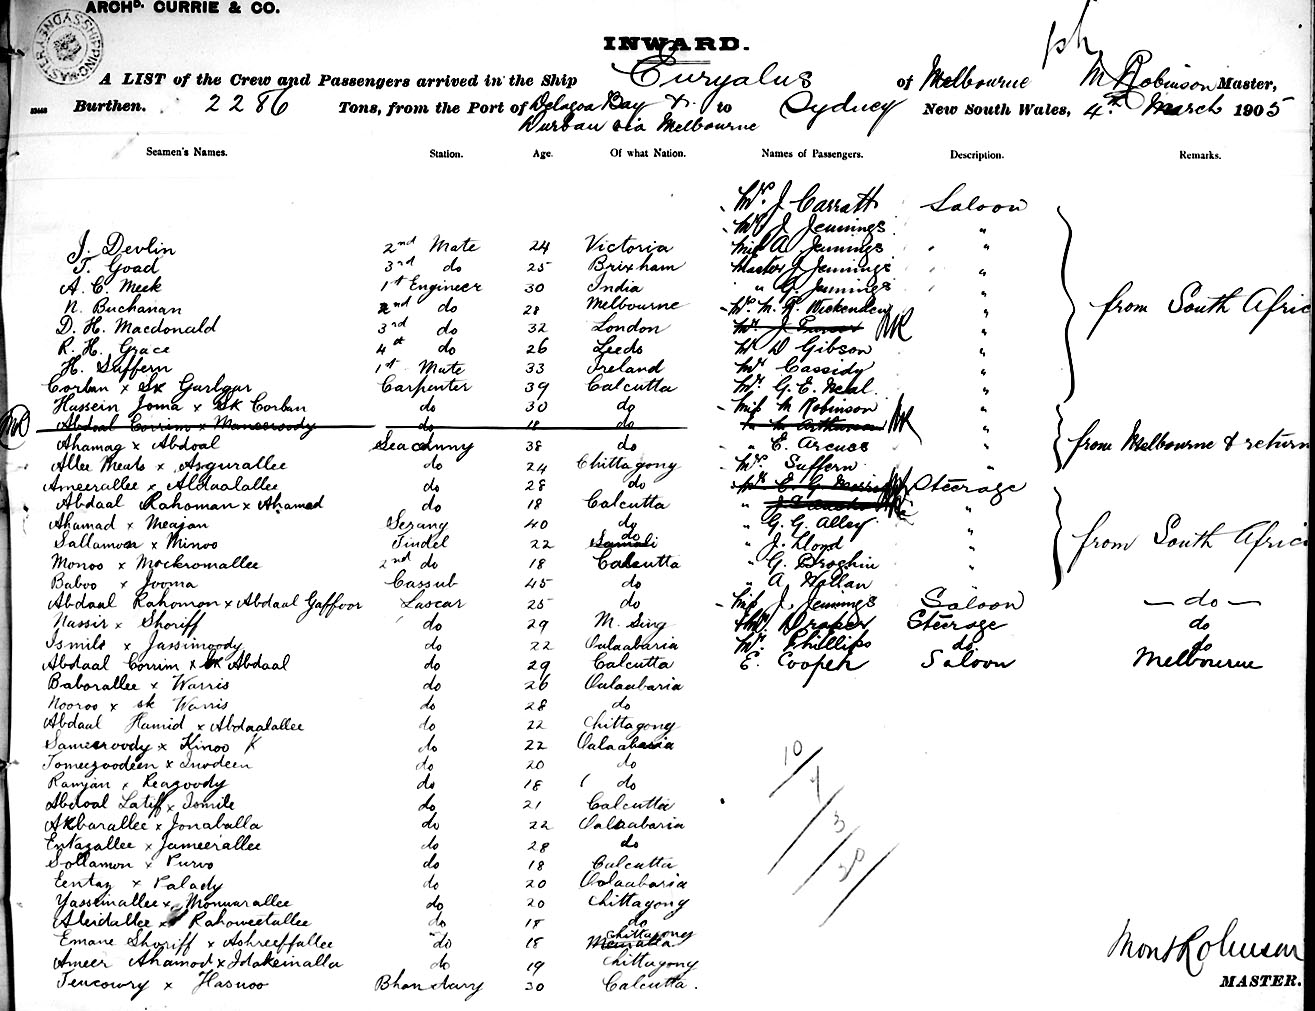 ARCHD. CURRIE & CO.
SYDNEY SHIPPING MASTER
INWARD.
A LIST of the Crew and Passengers arrived in the Ship Euryalus of Melbourne M Robinson Master,
Burthen. 2286 Tons, from the Port of Delagoa Bay & to Sydney New South Wales, 4th March 1905
Durban via Melbourne
Seamen's Names. Station. Age. Of what Nation. Names of Passengers. Description. Remarks.
Mrs J Carratt Saloon
Mr J Jennings "
J. Devlin 2nd Mate 24 Victoria Miss A Jennings "
T. Goad 3rd do 25 Brixham Master J Jennings "
A. C. Meek 1st Engineer 30 India " G. Jennings " from South Afric
N. Buchanan 2nd do 28 Melbourne "
D. H. Macdonald 3rd do 32 London Mr. J "
R. H. Grace 4th do 26 Leeds Mr D Gibson "
H. Suffern 1st Mate 33 Ireland Mr Cassidy "
Corban x Sk Gurlgar Carpenter 39 Calcutta Mr. G. E. Neal "
Hussein Joma x Sk Corban do 30 do Miss M Robinson "
Abdoal Corrim x Maneeroody do 18 do
Ahamag x Abdoal Seacunny 38 do " E. Arcus " from Melbourne & return
Allee Meats x Asgurallee do 24 Chittagong Mrs. Suffern "
Ameerallee x Aldaalallee do 28 do Steerage
Abdaal Rahoman x Ahamad do 18 Calcutta "
Ahamad x Meajan Serang 40 do " G. G. Alley "
Sallamon x Minoo Tindel 22 do " J. Lloyd " from South Afric
Monoo x Mockromallee 2nd do 18 Calcutta " G. Broghin "
Baboo x Jooma Cassub 45 do " A Hallan "
Abdaal Rahomon x Abdaal Gaffoor Lascar 25 do Miss J. Jennings Saloon — do —
Nassir x Shoriff do 29 M. Sing Draper Steerage do
Ismile x Jassimoody do 22 Oolaabaria Mr. Phillips do do
Abdaal Corrim x Sk Abdaal do 29 Calcutta E. Cooper Saloon Melbourne
Baborallee x Warris do 26 Oolaabaria
Nooroo x sk Warris do 28 do
Abdaal Hamid x Abdaalallee do 22 Chittagong
Sameeroody x Kinoo do 22 Oolaabaria
Tomeezoodeen x Inodeen do 20 do
Ramjan x Reazoody do 18 do
Abdoal Latiff x Ismile do 21 Calcutta
Akbarallee x Jonaballa do 22 Oolaabaria
Entazallee x Jameerallee do 28 do
Sollamon x Purvo do 18 Calcutta
Eentaz x Palady do 20 Oolaabaria
Yasseinallee x Monwarallee do 20 Chittagong
Aleidallee x Rahoweetallee do 18 do
Emane Shoriff x Ashreeffallee do 18 Chittagong
Ameer Ahamod x Idakeinalla do 19 Chittagong
Tencowry x Hasnoo Bhandary 30 Calcutta.
10/4/3/30/
Mont Robinson
MASTER.